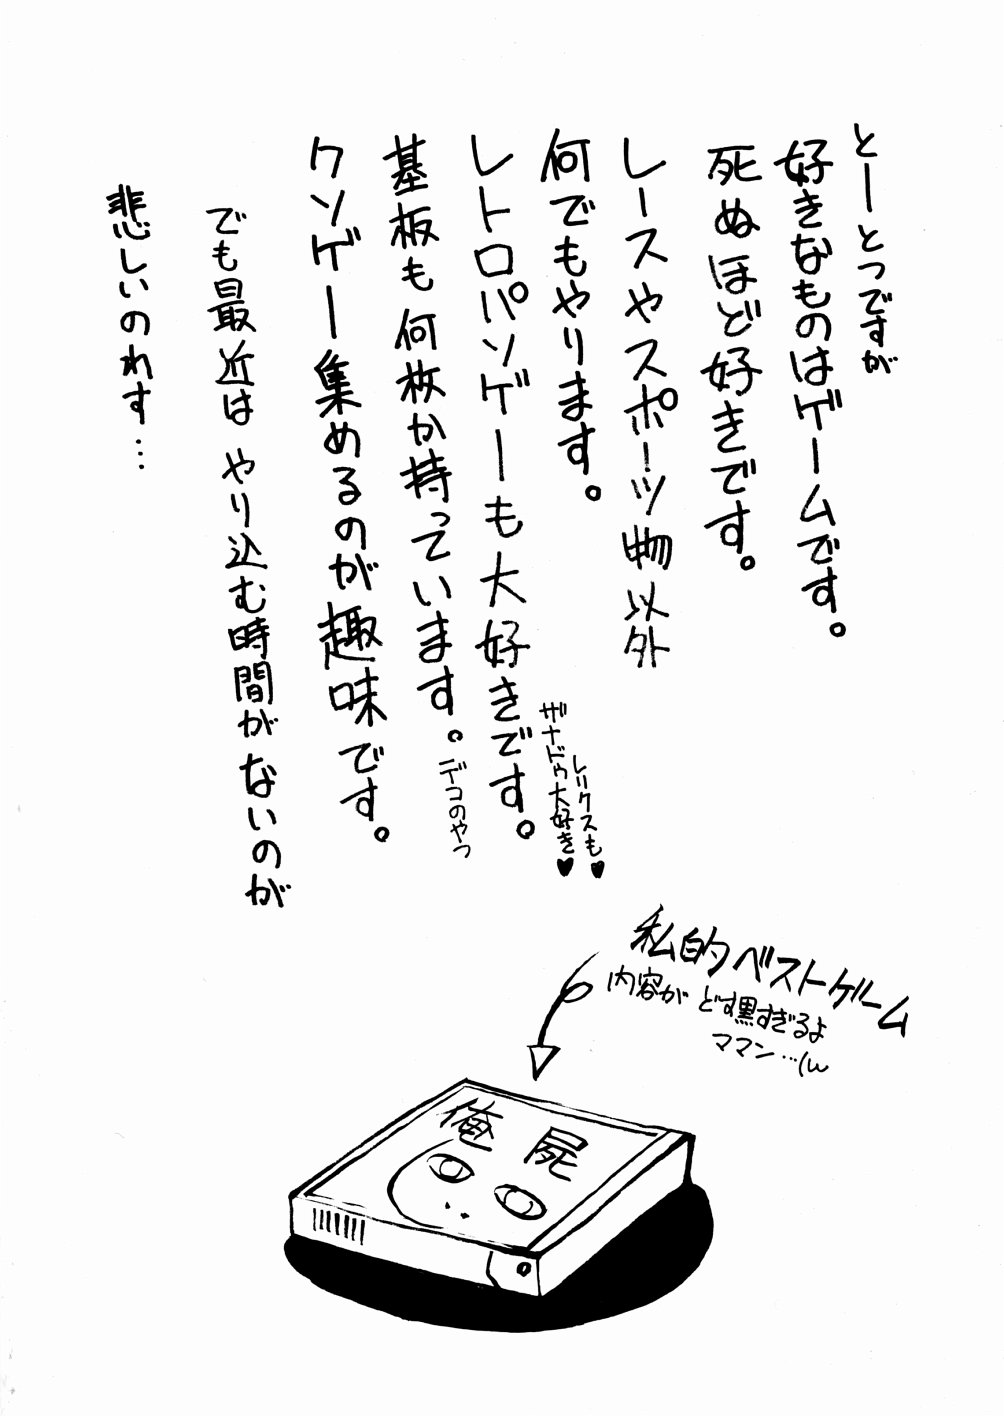 とーとつですが
好きなものはゲームです。
死ぬほど好きです。
レースやスポーツ物以外
何でもやります。
レトロパソゲーも大好きです。
レリクスも♥
ザナドゥ大好き♥
基板も何枚か持っています。
デコのやつ
クソゲー集めるのが趣味です。
でも最近はやり込む時間がないのが
悲しいのれす…
私的ベストゲーム
内容がどす黒すぎるよ
ママン…(w
俺屍